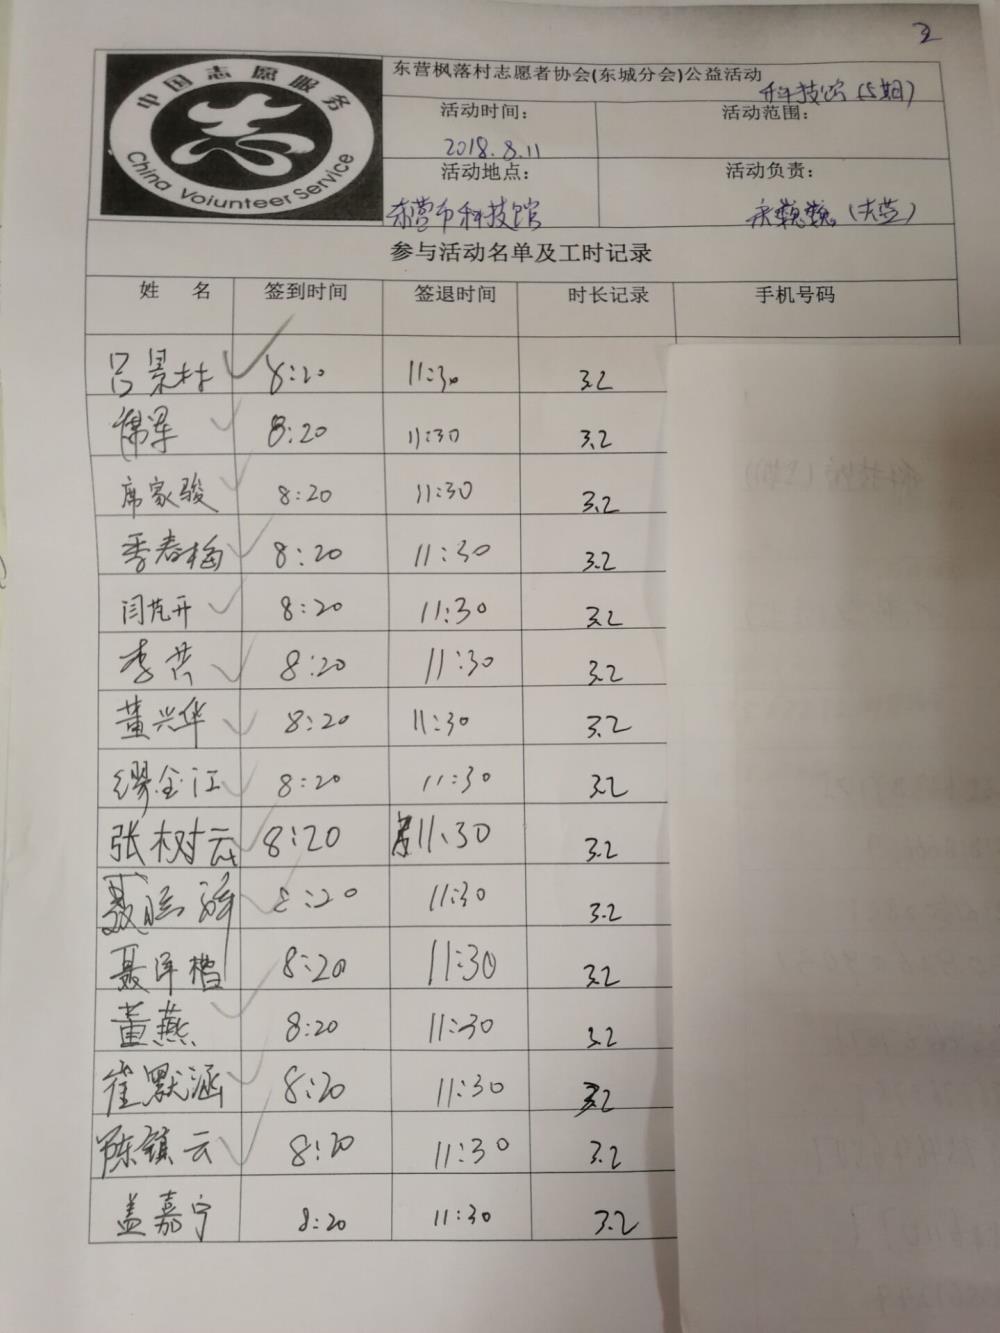 2
中国志愿服务
China Volunteer Service
东营枫落村志愿者协会(东城分会)公益活动
科技馆(5期)
活动时间: 活动范围:
2018.8.11
活动地点: 活动负责:
东营市科技馆 (天蓝)
参与活动名单及工时记录
姓 名 签到时间 签退时间 时长记录 手机号码
吕景村 8:20 11:30 3.2
8:20 11:30 3.2
席家骏 8:20 11:30 3.2
季春梅 8:20 11:30 3.2
闫芃开 8:20 11:30 3.2
李芸 8:20 11:30 3.2
董兴华 8:20 11:30 3.2
缪金江 8:20 11:30 3.2
张树云 8:20 11:30 3.2
聂 8:20 11:30 3.2
聂泽楷 8:20 11:30 3.2
董燕 8:20 11:30 3.2
崔默涵 8:20 11:30 3.2
陈镇云 8:20 11:30 3.2
盖嘉宁 8:20 11:30 3.2